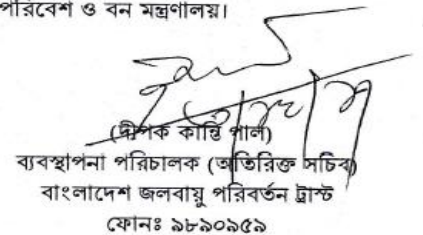 পরিবেশ ও বন মন্ত্রণালয়।
(দীপক কান্তি পাল)
ব্যবস্থাপনা পরিচালক (অতিরিক্ত সচিব)
বাংলাদেশ জলবায়ু পরিবর্তন ট্রাস্ট
ফোনঃ ৯৮৯০৯৫৯